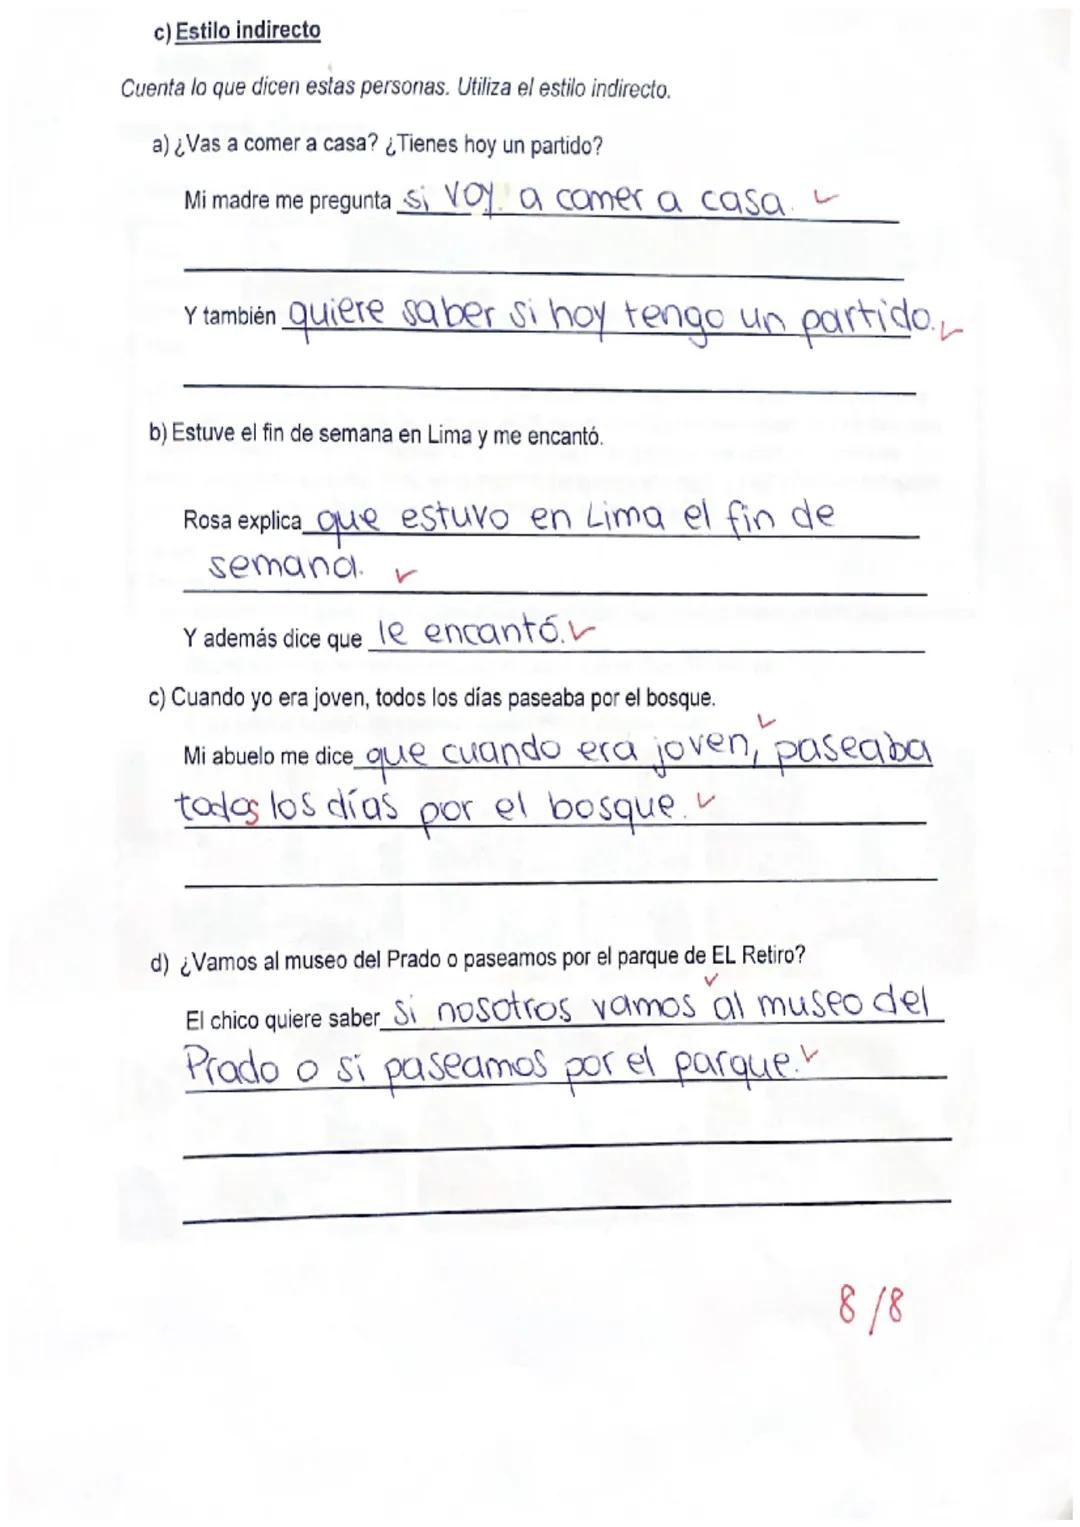 c) Estilo indirecto
Cuenta lo que dicen estas personas. Utiliza el estilo indirecto.
a) ¿Vas a comer a casa? ¿Tienes hoy un partido?
Mi madre me pregunta si voy a comer a casa.
Y también quiere saber si hoy tengo un partido.
b) Estuve el fin de semana en Lima y me encantó.
Rosa explica que estuvo en Lima el fin de
semana.
Y además dice que le encantó.
c) Cuando yo era joven, todos los días paseaba por el bosque.
Mi abuelo me dice que cuando era joven, paseaba
todos los días por el bosque.
d) ¿Vamos al museo del Prado o paseamos por el parque de EL Retiro?
El chico quiere saber si nosotros vamos al museo del
Prado o si paseamos por el parque.
8/8